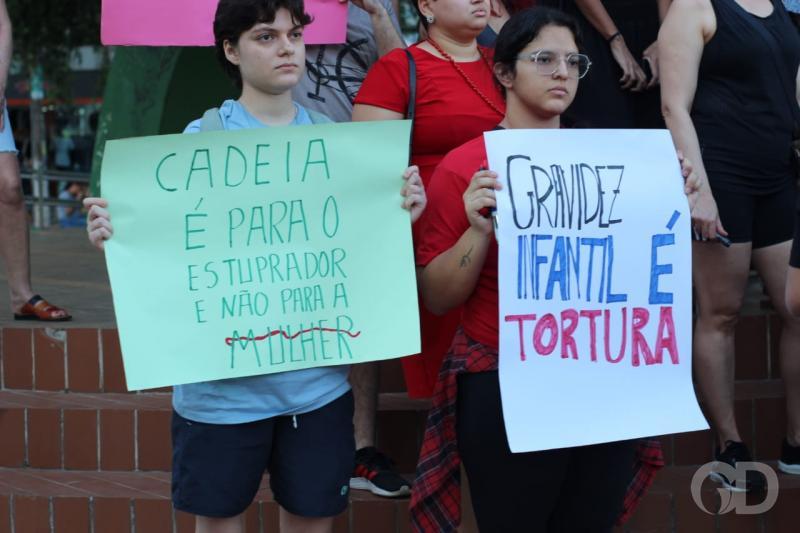 CADEIA
É PARA O
ESTUPRADOR
E NÃO PARA A
MULHER
GRAVIDEZ
INFANTIL É
TORTURA
GD